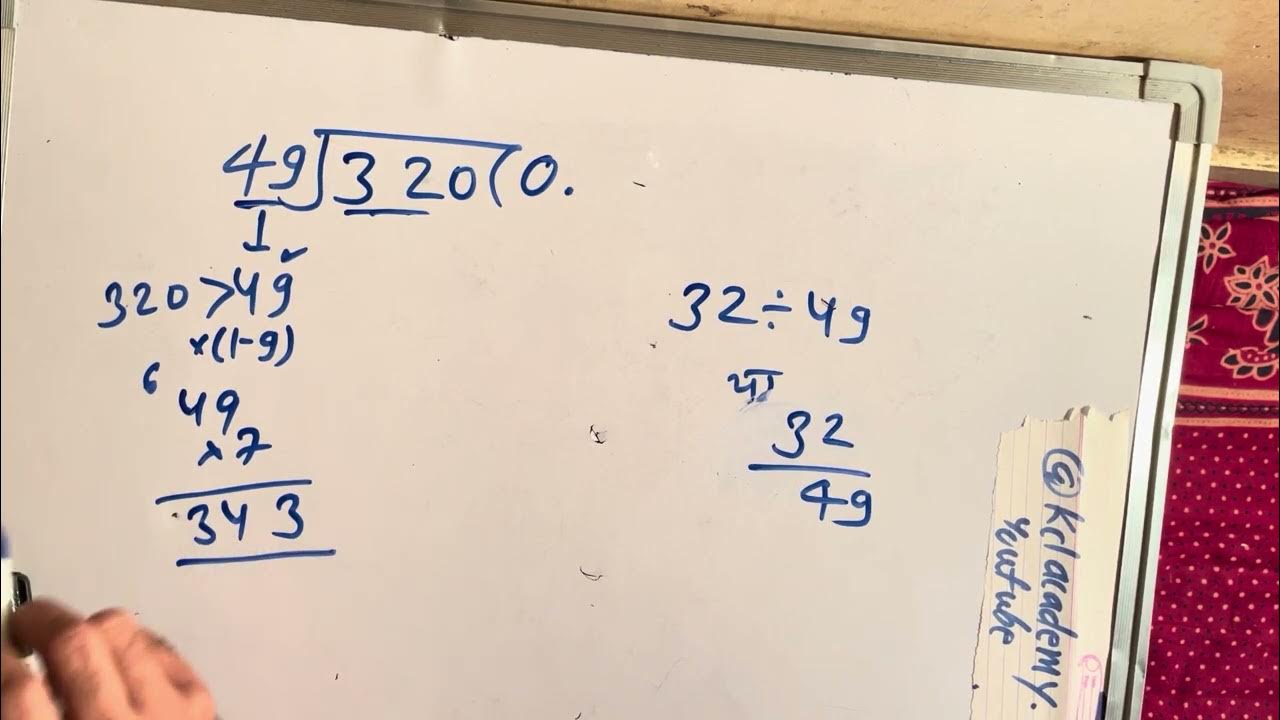 49)320(0.
1
320>49 ✓
×(1-9)
6
49
×7
343
32÷49
या
32
49
@Kclacademy.
Youtube